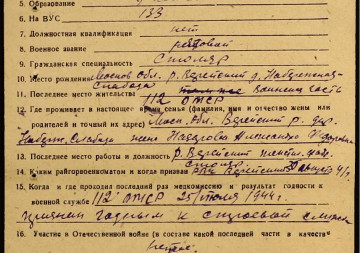 5. Образование
6. На ВУС 133
7. Должностная квалификация нет
8. Военное звание рядовой
9. Гражданская специальность Столяр
10. Место рождения Москов. Обл. р. Верейский д.
Слобода
11. Последнее место жительства воинская часть
112 ОТСР
12. Где проживает в настоящее время семья (фамилия, имя и отчество жены или
родителей и точный их адрес) Моск. Обл. Верейский р. дер.
Слобода жена Назарова Александра
13. Последнее место работы и должность р. Верейский
столяр
14. Каким райгорвоенкоматом и когда призван РВК Верейский август 41 г.
15. Когда и где проходил последний раз медкомиссию и результат годности к
военной службе 112 ОТСР 25 июля 1944 г.
признан годным к строевой службе
16. Участие в Отечественной войне (в составе какой последней части в качестве